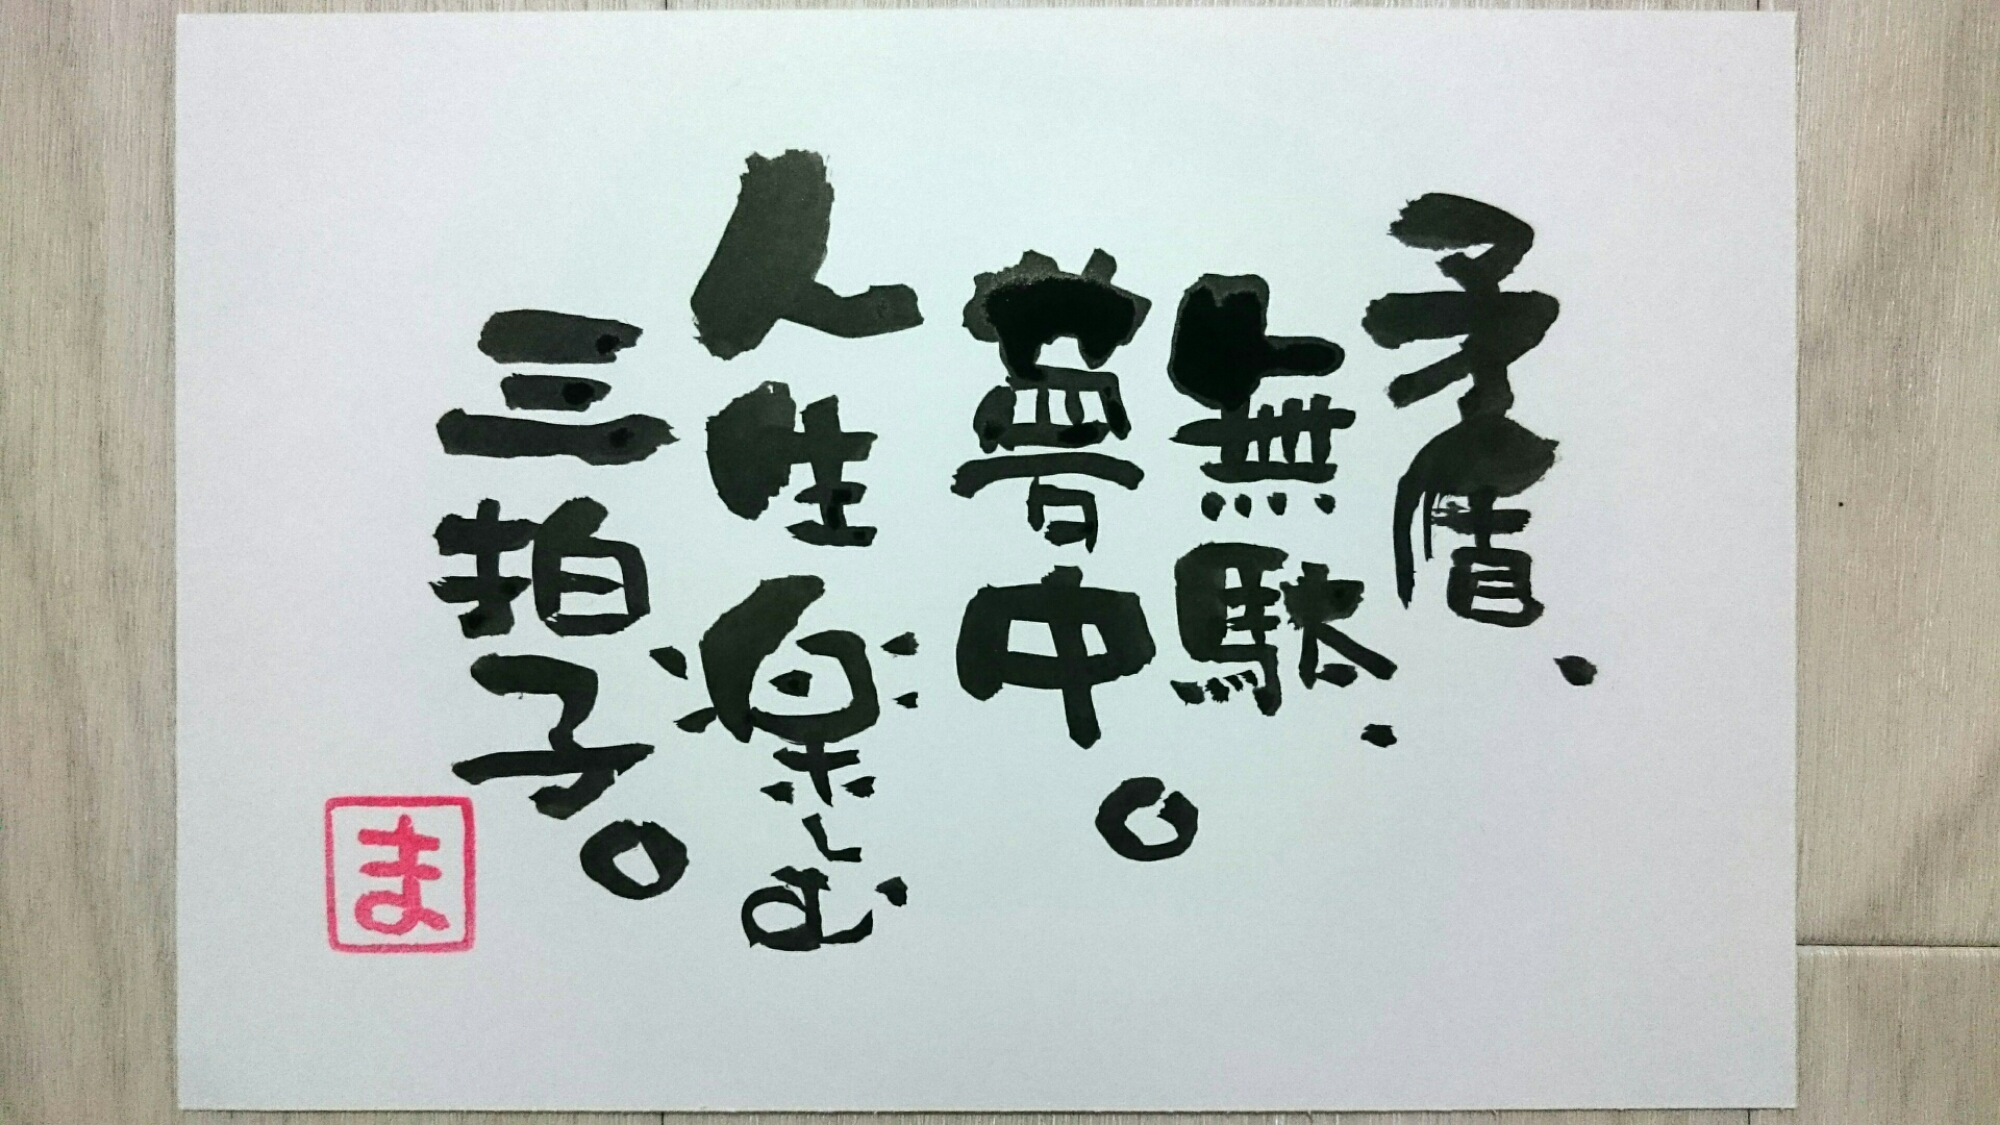 矛盾、
無駄、
夢中。
人生楽しむ
三拍子。
ま